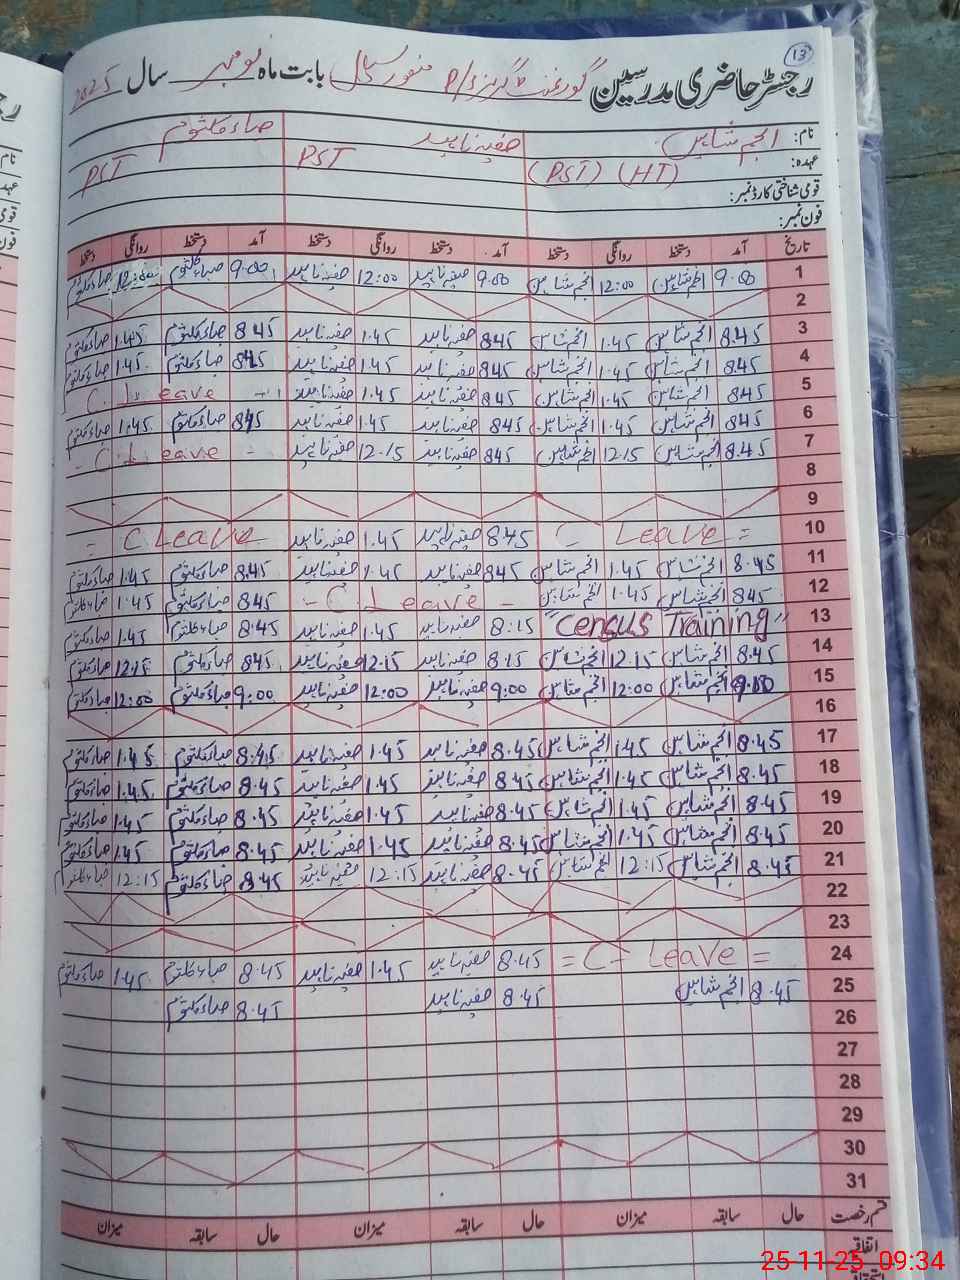 13
رجسٹر حاضری مدرسین گورنمنٹ گرلز P/S منظور سیال بابت ماہ نومبر سال 2025
نام: انجم شاہین صفیہ ناہید صباء کلثوم
عہدہ: (PST) (HT) PST PST
قومی شناختی کارڈ نمبر:
فون نمبر:
تاریخ آمد دستخط روانگی دستخط آمد دستخط روانگی دستخط آمد دستخط روانگی دستخط
1 9.00 انجم شاہین 12:00 انجم شاہین 9.00 صفیہ ناہید 12:00 صفیہ ناہید 9.00 صباء کلثوم صباء کلثوم
2
3 8.45 انجم شاہین 1.45 انجم شاہین 8.45 صفیہ ناہید 1.45 صفیہ ناہید 8.45 صباء کلثوم 1.45 صباء کلثوم
4 8.45 انجم شاہین 1.45 انجم شاہین 8.45 صفیہ ناہید 1.45 صفیہ ناہید 8.45 صباء کلثوم 1.45 صباء کلثوم
5 8.45 انجم شاہین 1.45 انجم شاہین 8.45 صفیہ ناہید 1.45 صفیہ ناہید C. Leave
6 8.45 انجم شاہین 1.45 انجم شاہین 8.45 صفیہ ناہید 1.45 صفیہ ناہید 8.45 صباء کلثوم 1.45 صباء کلثوم
7 8.45 انجم شاہین 12.15 انجم شاہین 8.45 صفیہ ناہید 12.15 صفیہ ناہید - C. Leave -
8
9
10 C Leave = 8.45 صفیہ ناہید 1.45 صفیہ ناہید - C Leave -
11 8.45 انجم شاہین 1.45 انجم شاہین 8.45 صفیہ ناہید 1.45 صفیہ ناہید 8.45 صباء کلثوم 1.45 صباء کلثوم
12 8.45 انجم شاہین 1.45 انجم شاہین - C. Leave - 8.45 صباء کلثوم 1.45 صباء کلثوم
13 "Census Training" 8:15 صفیہ ناہید 1.45 صفیہ ناہید 8.45 صباء کلثوم 1.45 صباء کلثوم
14 8.45 انجم شاہین 12.15 انجم شاہین 8.15 صفیہ ناہید 12.15 صفیہ ناہید 8.45 صباء کلثوم 12.15 صباء کلثوم
15 انجم شاہین 12:00 انجم شاہین 9:00 صفیہ ناہید 12:00 صفیہ ناہید 9:00 صباء کلثوم 12:00 صباء کلثوم
16
17 8.45 انجم شاہین 1.45 انجم شاہین 8.45 صفیہ ناہید 1.45 صفیہ ناہید 8.45 صباء کلثوم 1.45 صباء کلثوم
18 8.45 انجم شاہین 1.45 انجم شاہین 8.45 صفیہ ناہید 1.45 صفیہ ناہید 8.45 صباء کلثوم 1.45 صباء کلثوم
19 8.45 انجم شاہین 1.45 انجم شاہین 8.45 صفیہ ناہید 1.45 صفیہ ناہید 8.45 صباء کلثوم 1.45 صباء کلثوم
20 8.45 انجم شاہین 1.45 انجم شاہین 8.45 صفیہ ناہید 1.45 صفیہ ناہید 8.45 صباء کلثوم 1.45 صباء کلثوم
21 8.45 انجم شاہین 12:15 انجم شاہین 8.45 صفیہ ناہید 12:15 صفیہ ناہید 8.45 صباء کلثوم 12:15 صباء کلثوم
22
23
24 = C- Leave = 8.45 صفیہ ناہید 1.45 صفیہ ناہید 8.45 صباء کلثوم 1.45 صباء کلثوم
25 8.45 انجم شاہین 8.45 صفیہ ناہید 8.45 صباء کلثوم
26
27
28
29
30
31
قسم رخصت حال سابقہ میزان حال سابقہ میزان حال سابقہ میزان
اتفاقیہ
25-11-25 09:34